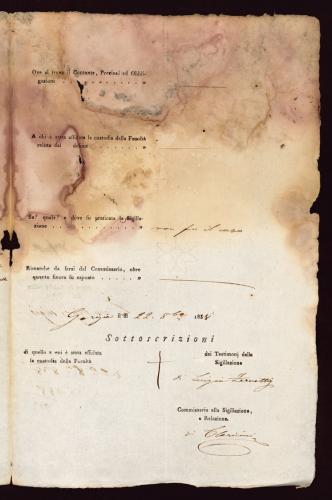 Ove si trova il Contante, Preziosi ed Obbli-
gazioni . . . . . . . . „
A chi è stata affidata la custodia della Facoltà
relitta dal defunto . . . . . „
Se? quale? e dove fu praticata la Sigilla-
zione . . . . . . . . „ non fu il caso
Rimarche da farsi dal Commissario, oltre
quanto finora fu esposto . . . . „
Gorizia li 22. 8bre 18
Sottoscrizioni
di quello a cui è stata affidata
la custodia della Facoltà
dei Testimonj della
Sigillazione
Luigia
Commissario alla Sigillazione,
e Relazione.